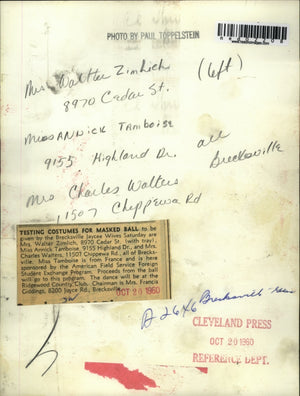 PHOTO BY PAUL TOPPELSTEIN
Mrs Walter Zimlich (left)
8970 Cedar St.
Miss ANNICK TAMBOISE
9155 Highland Dr. all
Brecksville
Mrs Charles Walters
11507 Chippewa Rd
TESTING COSTUMES FOR MASKED BALL to be
given by the Brecksville Jaycee Wives Saturday are
Mrs. Walter Zimlich, 8970 Cedar St. (with tray);
Miss Annick Tamboise 9155 Highland Dr., and Mrs.
Charles Walters, 11507 Chippewa Rd., all of Brecks-
ville. Miss Tamboise is from France and is here
sponsored by the American Field Service Foreign
Student Exchange Program. Proceeds from the ball
will go to this program. The dance will be at the
Ridgewood Country Club. Chairman is Mrs. Francis
Giddings, 8200 Jayce Rd., Brecksville.
OCT 20 1960
A 2646 Brecksville
CLEVELAND PRESS
OCT 20 1960
REFERENCE DEPT.